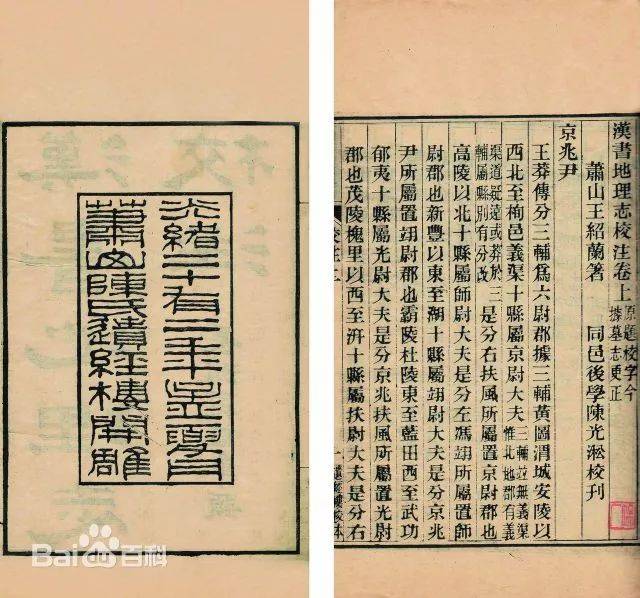 漢書地理志校注卷上 原題校字今據墓志更正
蕭山王紹蘭著 同邑後學陳光淞校刊
京兆尹
王莽傳分三輔爲六尉郡據三輔黃圖渭城安陵以
西北至栒邑義渠十縣屬京尉大夫 三輔並無義渠惟北地郡有義
渠道疑遠或莽於三輔屬縣別有分改 是分右扶風所屬置京尉郡也
高陵以北十縣屬師尉大夫是分左馮翊所屬置師
尉郡也新豐以東至湖十縣屬翊尉大夫是分京兆
尹所屬置翊尉郡也霸陵杜陵東至藍田西至武功
郁夷十縣屬光尉大夫是分京兆扶風所屬置光尉
郡也茂陵槐里以西至汧十縣屬扶尉大夫是分右
光緒二十有二年孟夏月
蕭山陳氏遺經樓開雕
Bai百科